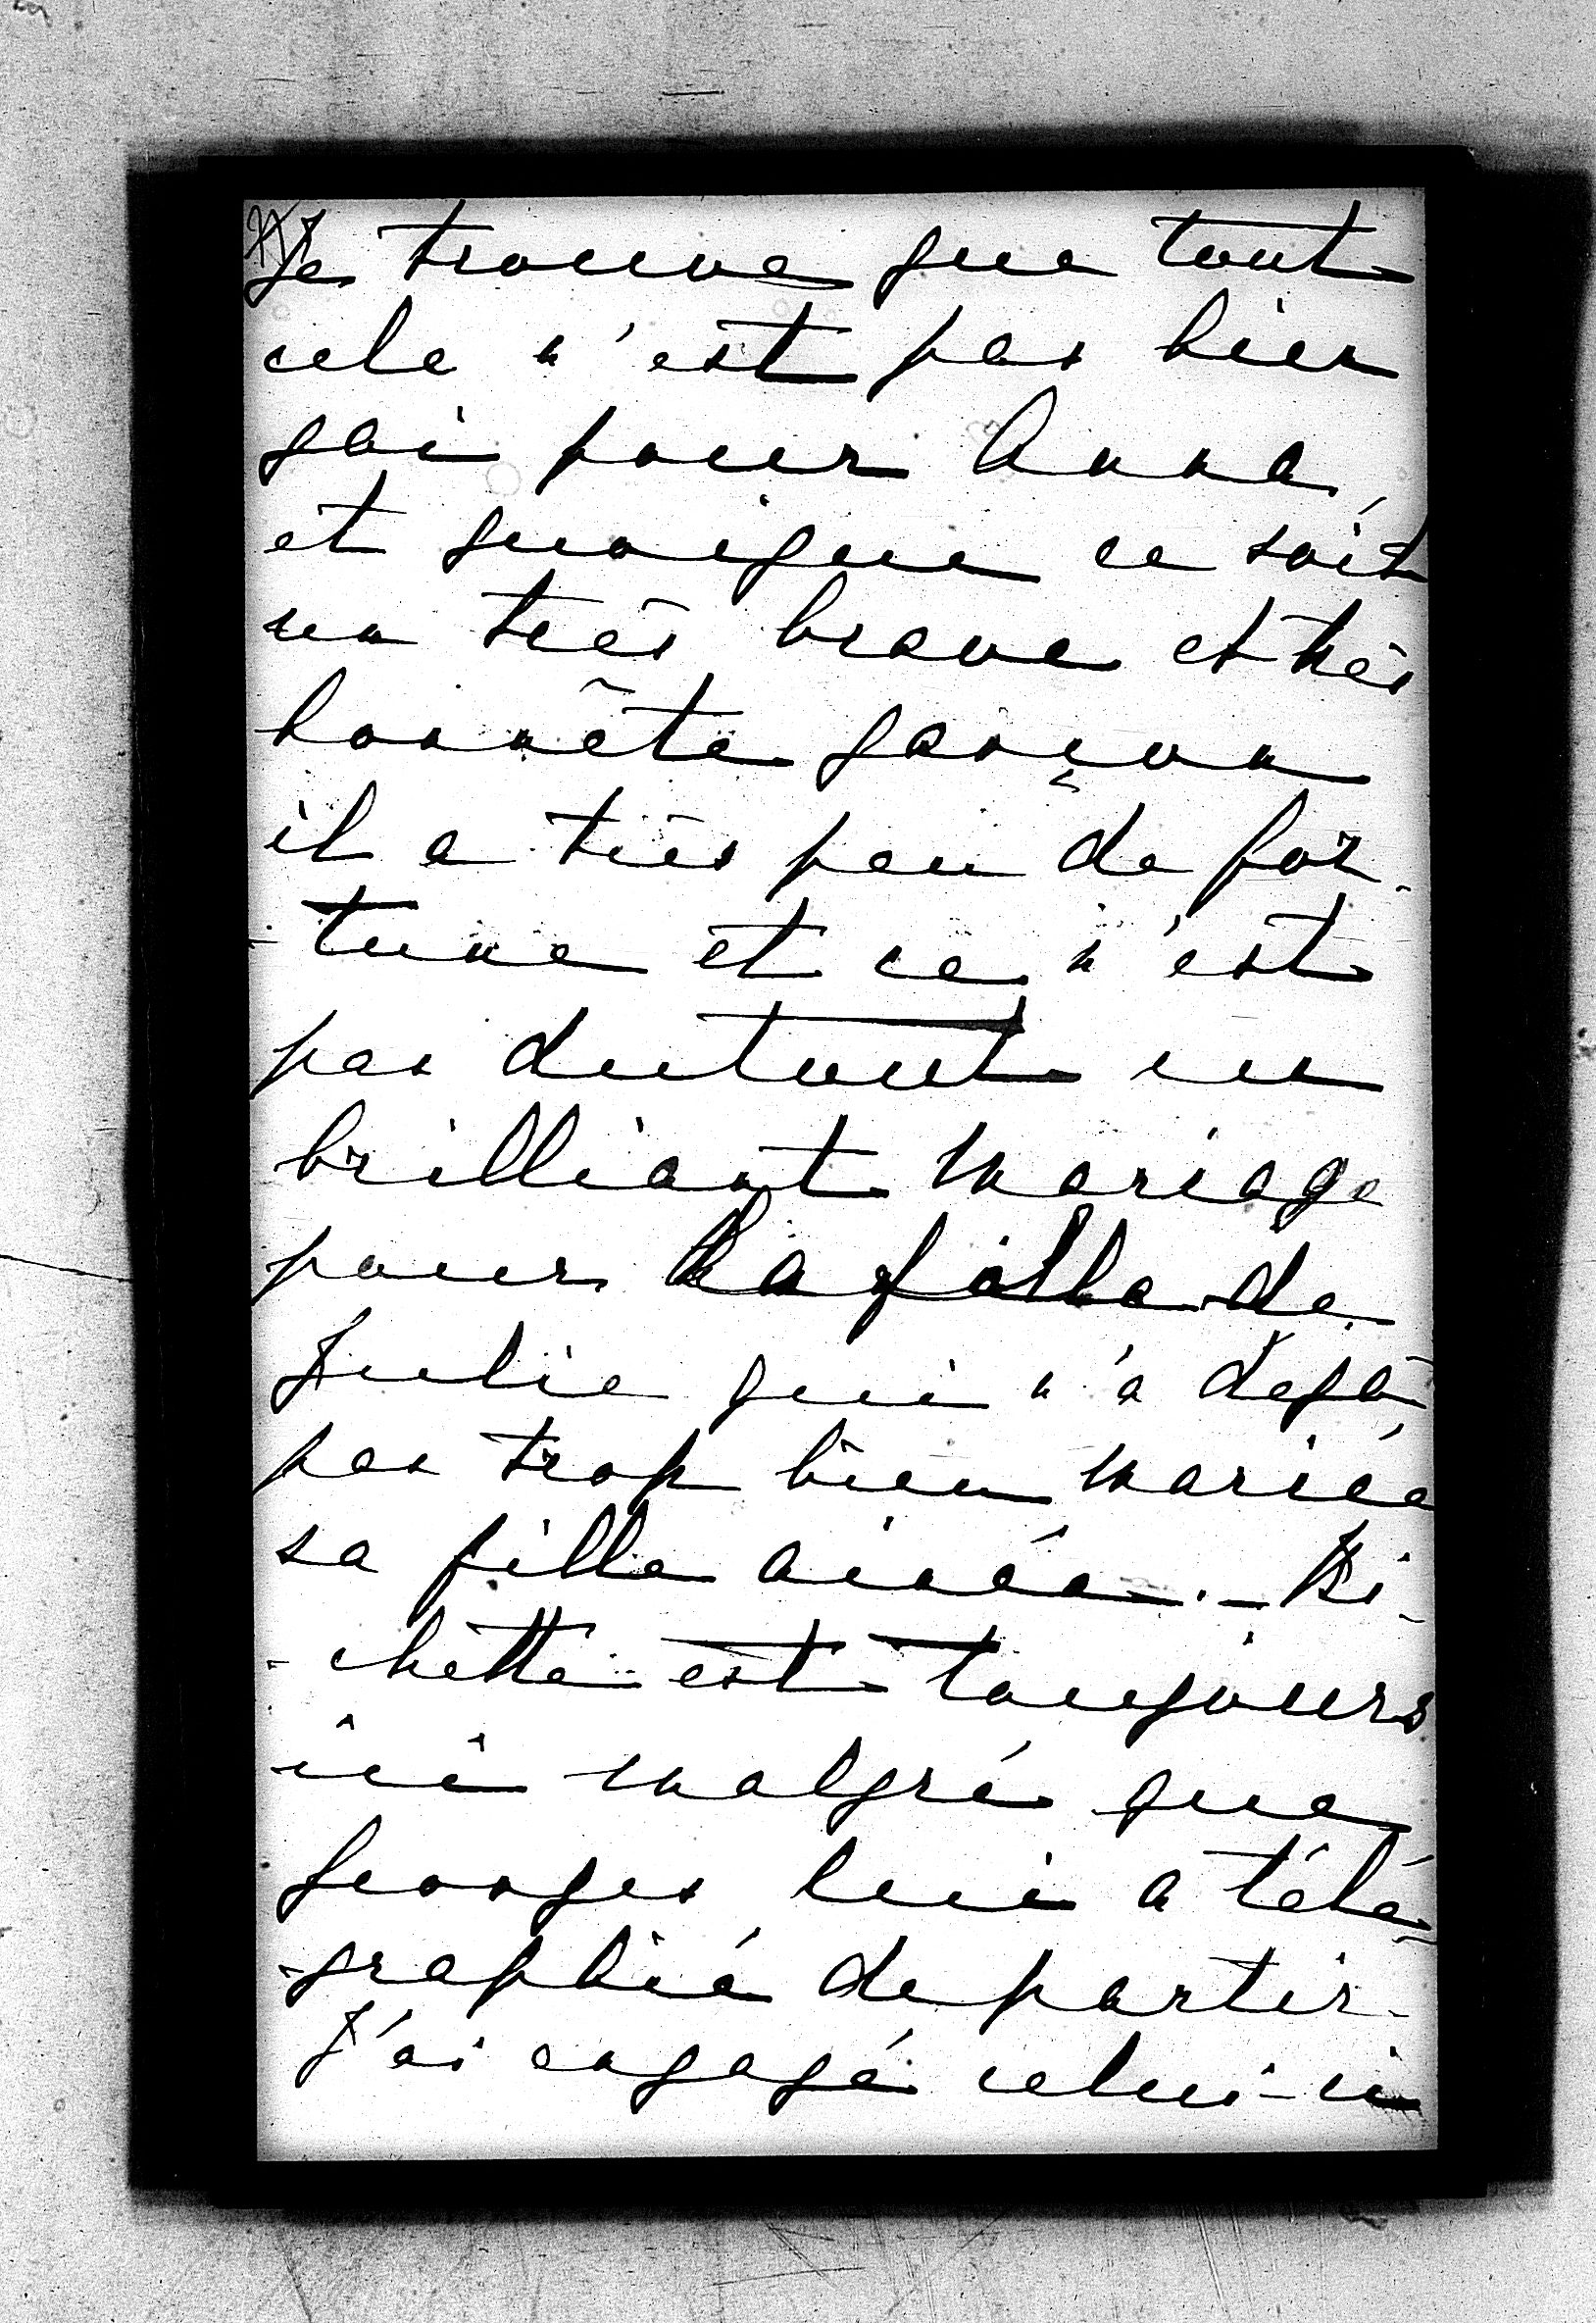 Je trouve que tout
cela n'est pas bien
gai pour Anna,
et quoique ce soit
un très brave et très
honnête garçon
il a très peu de for-
-tune et ce n'est
pas dutout un
brilliant mariage
pour la fille de
Julie qui n'a déjà
pas trop bien mariée
sa fille ainée. — Bi-
-chette est toujours
ici malgré que
Georges lui a télé-
-graphié de partir.
J'ai engagé celui-ci